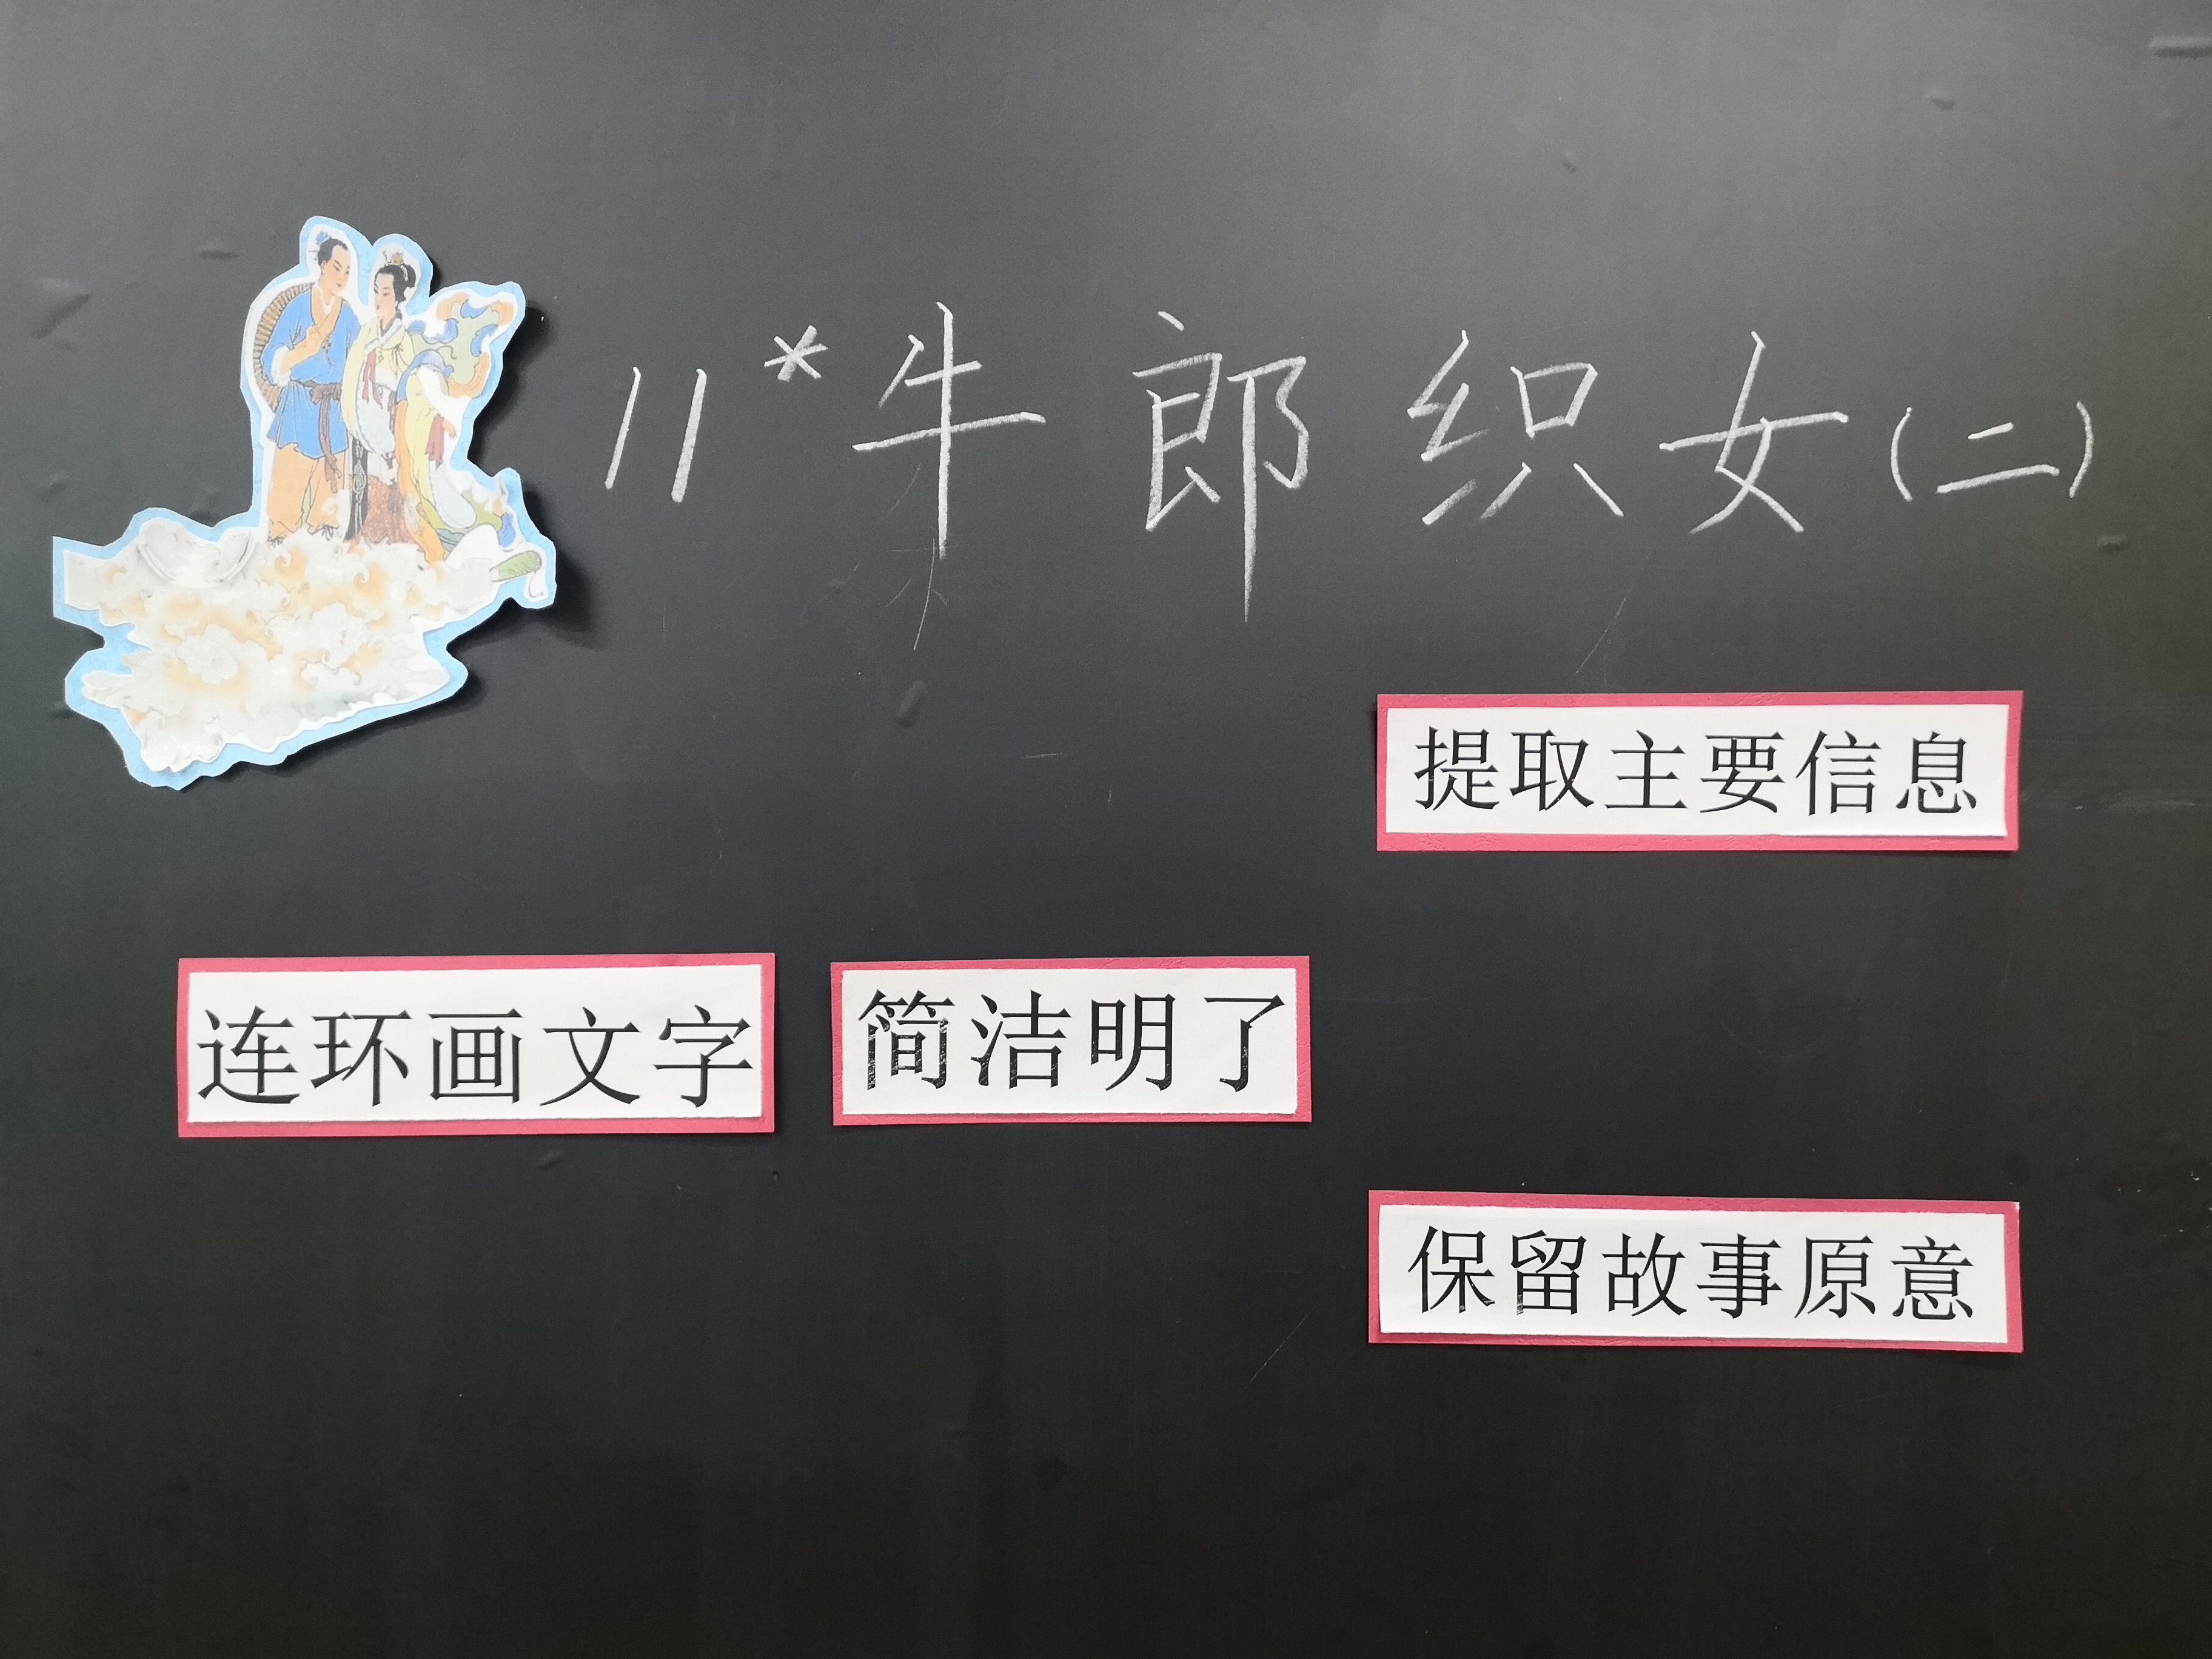 11*牛郎织女(二)
提取主要信息
连环画文字 简洁明了
保留故事原意